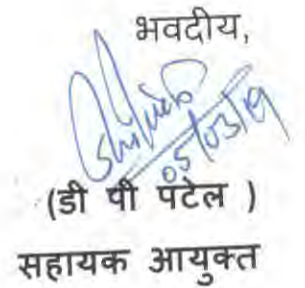 भवदीय,
05/03/19
(डी पी पटेल )
सहायक आयुक्त